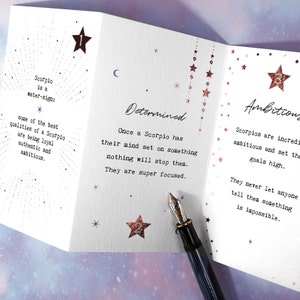 1
Scorpio
is a
water-sign:
some of the best
qualities of a Scorpio
are being loyal
authentic and
ambitious.
Determined
Once a Scorpio has
their mind set on something
nothing will stop them.
They are super focused.
2
3
Ambitious
Scorpios are incredi
ambitious and set the
goals high.
They never let anyone
tell them something
is impossible.